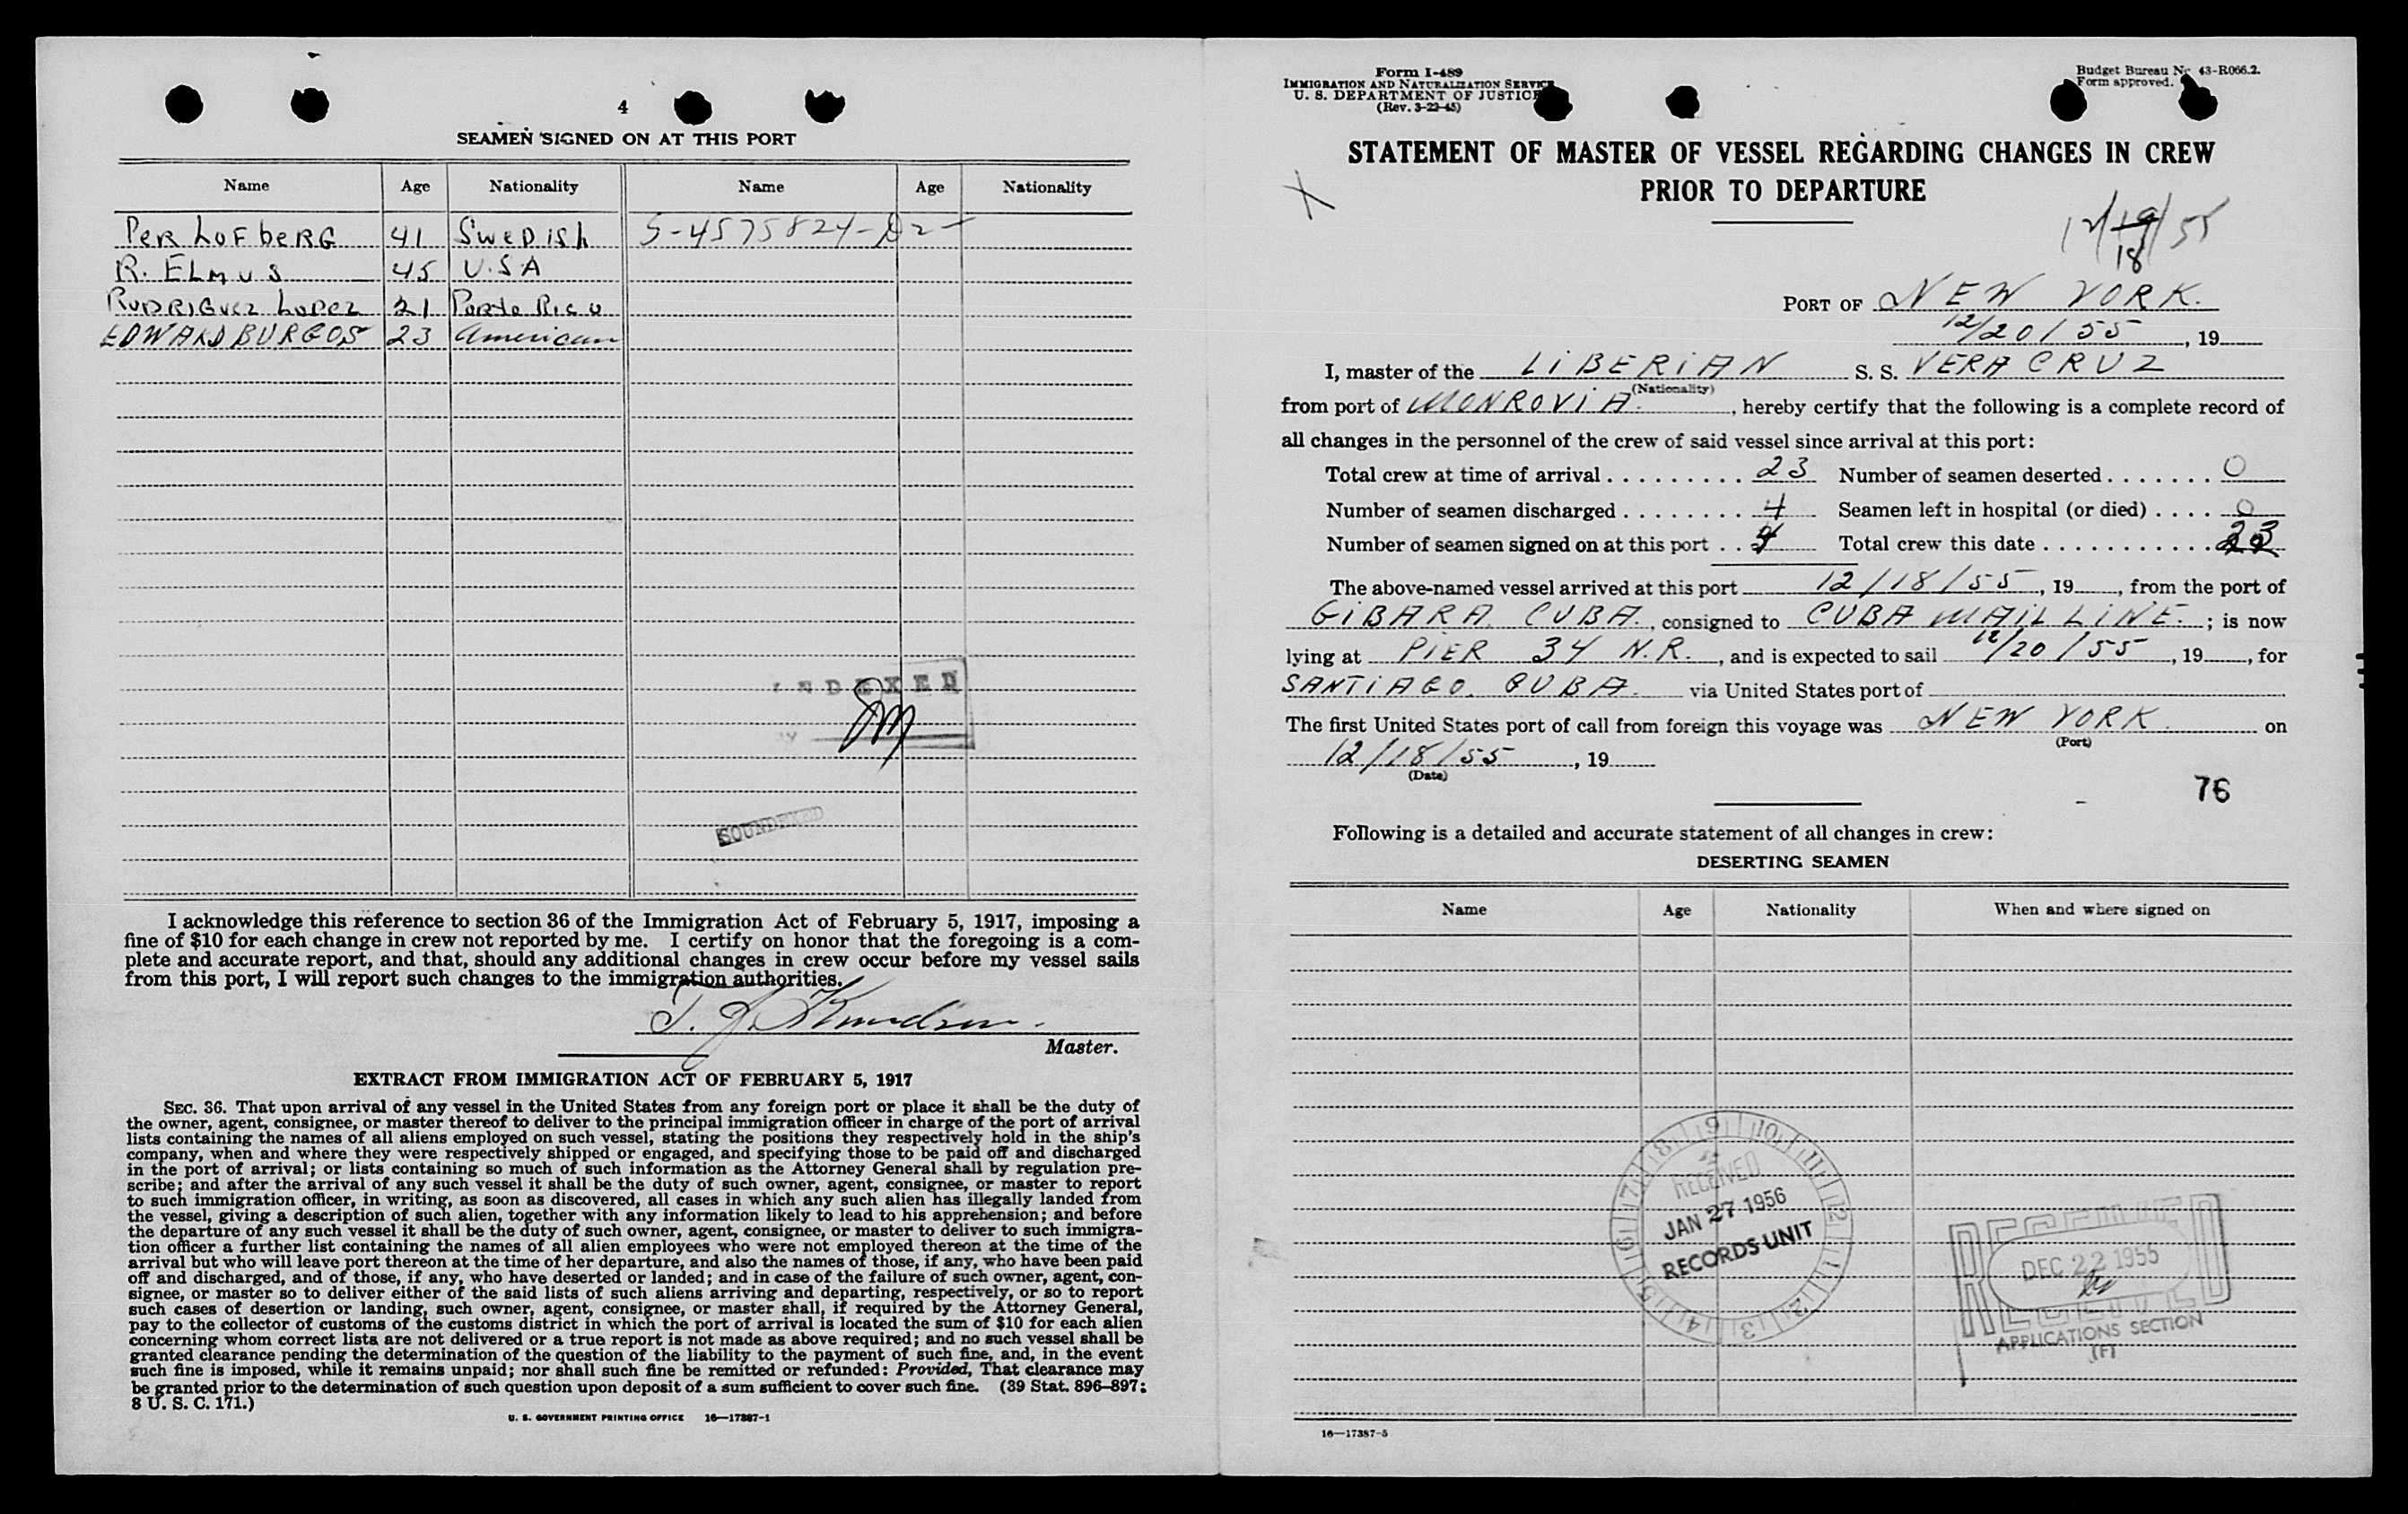 4
SEAMEN SIGNED ON AT THIS PORT
Name Age Nationality Name Age Nationality
PER LOFBERG 41 SWEDISH S-4575824-D2-
R. ELMUS 45 U.S.A
RUDRIGUEZ LOPEZ 21 Porto Rico
EDWARD BURGOS 23 American
INDEXED
BY
SOUNDEXED
I acknowledge this reference to section 36 of the Immigration Act of February 5, 1917, imposing a
fine of $10 for each change in crew not reported by me. I certify on honor that the foregoing is a com-
plete and accurate report, and that, should any additional changes in crew occur before my vessel sails
from this port, I will report such changes to the immigration authorities.
T. J. Knudsen.
Master.
EXTRACT FROM IMMIGRATION ACT OF FEBRUARY 5, 1917
SEC. 36. That upon arrival of any vessel in the United States from any foreign port or place it shall be the duty of
the owner, agent, consignee, or master thereof to deliver to the principal immigration officer in charge of the port of arrival
lists containing the names of all aliens employed on such vessel, stating the positions they respectively hold in the ship's
company, when and where they were respectively shipped or engaged, and specifying those to be paid off and discharged
in the port of arrival; or lists containing so much of such information as the Attorney General shall by regulation pre-
scribe; and after the arrival of any such vessel it shall be the duty of such owner, agent, consignee, or master to report
to such immigration officer, in writing, as soon as discovered, all cases in which any such alien has illegally landed from
the vessel, giving a description of such alien, together with any information likely to lead to his apprehension; and before
the departure of any such vessel it shall be the duty of such owner, agent, consignee, or master to deliver to such immigra-
tion officer a further list containing the names of all alien employees who were not employed thereon at the time of the
arrival but who will leave port thereon at the time of her departure, and also the names of those, if any, who have been paid
off and discharged, and of those, if any, who have deserted or landed; and in case of the failure of such owner, agent, con-
signee, or master so to deliver either of the said lists of such aliens arriving and departing, respectively, or so to report
such cases of desertion or landing, such owner, agent, consignee, or master shall, if required by the Attorney General,
pay to the collector of customs of the customs district in which the port of arrival is located the sum of $10 for each alien
concerning whom correct lists are not delivered or a true report is not made as above required; and no such vessel shall be
granted clearance pending the determination of the question of the liability to the payment of such fine, and, in the event
such fine is imposed, while it remains unpaid; nor shall such fine be remitted or refunded: Provided, That clearance may
be granted prior to the determination of such question upon deposit of a sum sufficient to cover such fine. (39 Stat. 896-897;
8 U. S. C. 171.)
U. S. GOVERNMENT PRINTING OFFICE 16—17387-1
Form I-489
IMMIGRATION AND NATURALIZATION SERVICE
U. S. DEPARTMENT OF JUSTICE
(Rev. 3-22-45)
Budget Bureau No 43-R066.2.
Form approved.
STATEMENT OF MASTER OF VESSEL REGARDING CHANGES IN CREW
PRIOR TO DEPARTURE
X
12/19/55
18
PORT OF NEW YORK.
12/20/55, 19
I, master of the LIBERIAN S. S. VERA CRUZ
(Nationality)
from port of MONROVIA., hereby certify that the following is a complete record of
all changes in the personnel of the crew of said vessel since arrival at this port:
Total crew at time of arrival......... 23 Number of seamen deserted....... 0
Number of seamen discharged........ 4 Seamen left in hospital (or died).... 0
Number of seamen signed on at this port.. 4 Total crew this date............ 23
The above-named vessel arrived at this port 12/18/55, 19, from the port of
GIBARA. CUBA., consigned to CUBA MAIL LINE.; is now
lying at PIER 34 N.R., and is expected to sail 12/20/55, 19, for
SANTIAGO. CUBA. via United States port of
The first United States port of call from foreign this voyage was NEW YORK. on
(Port)
12/18/55, 19
(Date)
76
Following is a detailed and accurate statement of all changes in crew:
DESERTING SEAMEN
Name Age Nationality When and where signed on
8 9 10 11 12 1 2 3 14 15 16 17
RECEIVED
JAN 27 1956
RECORDS UNIT
RECEIVED
DEC 22 1955
APPLICATIONS SECTION
(F)
16—17387-5